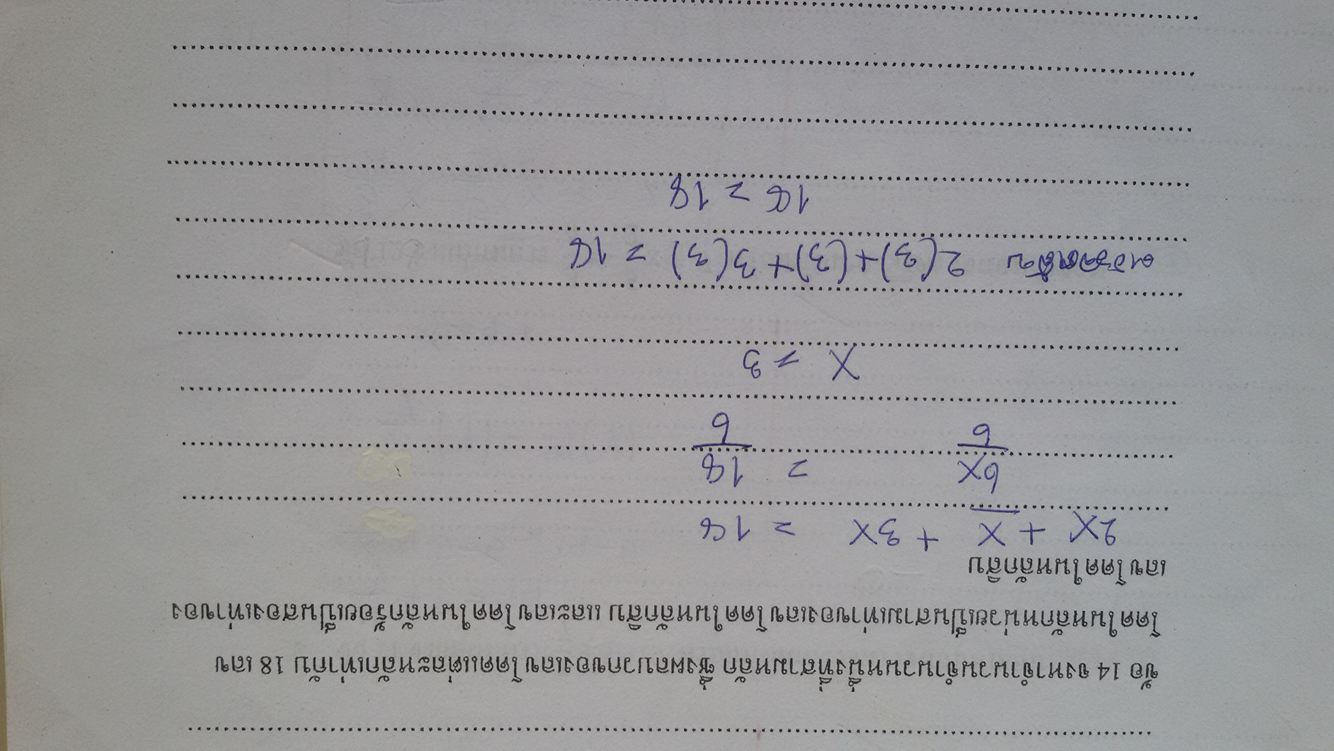 ข้อ 14 จงหาจำนวนจำนวนหนึ่งที่สามหลัก ซึ่งผลบวกของเลขโดดแต่ละหลักเท่ากับ 18 เลข
โดดในหลักหน่วยเป็นสามเท่าของเลขโดดในหลักสิบ และเลขโดดในหลักร้อยเป็นสองเท่าของ
เลขโดดในหลักสิบ
2X + X + 3X = 18
6X/6 = 18/6
X = 3
2(3)+(3)+3(3) = 18
18 = 18